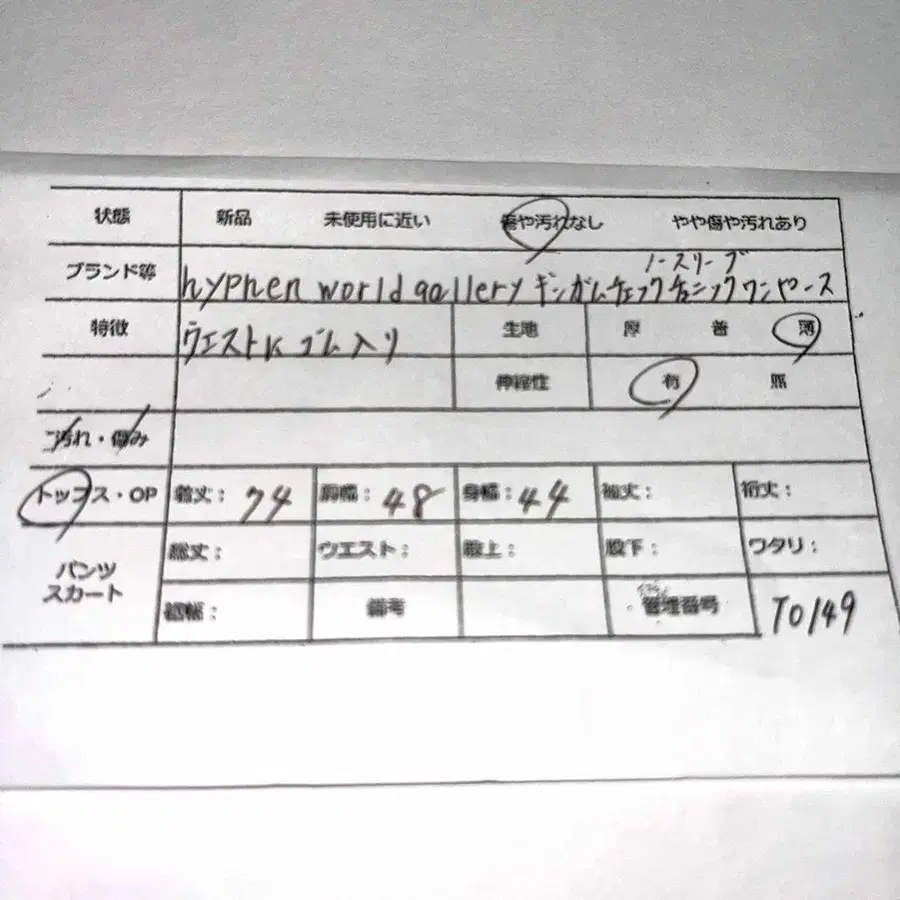 状態 新品 未使用に近い 傷や汚れなし やや傷や汚れあり
ノースリーブ
ブランド等 hyphen world gallery ギンガムチェックチュニックワンピース
特徴 ウエストにゴム入り 生地 厚 普 薄
伸縮性 有 無
汚れ・傷み
トップス・OP 着丈: 74 胸幅: 48 身幅: 44 袖丈: 裄丈:
パンツ 総丈: ウエスト: 股上: 股下: ワタリ:
スカート 裾幅: 備考 管理番号 T0149